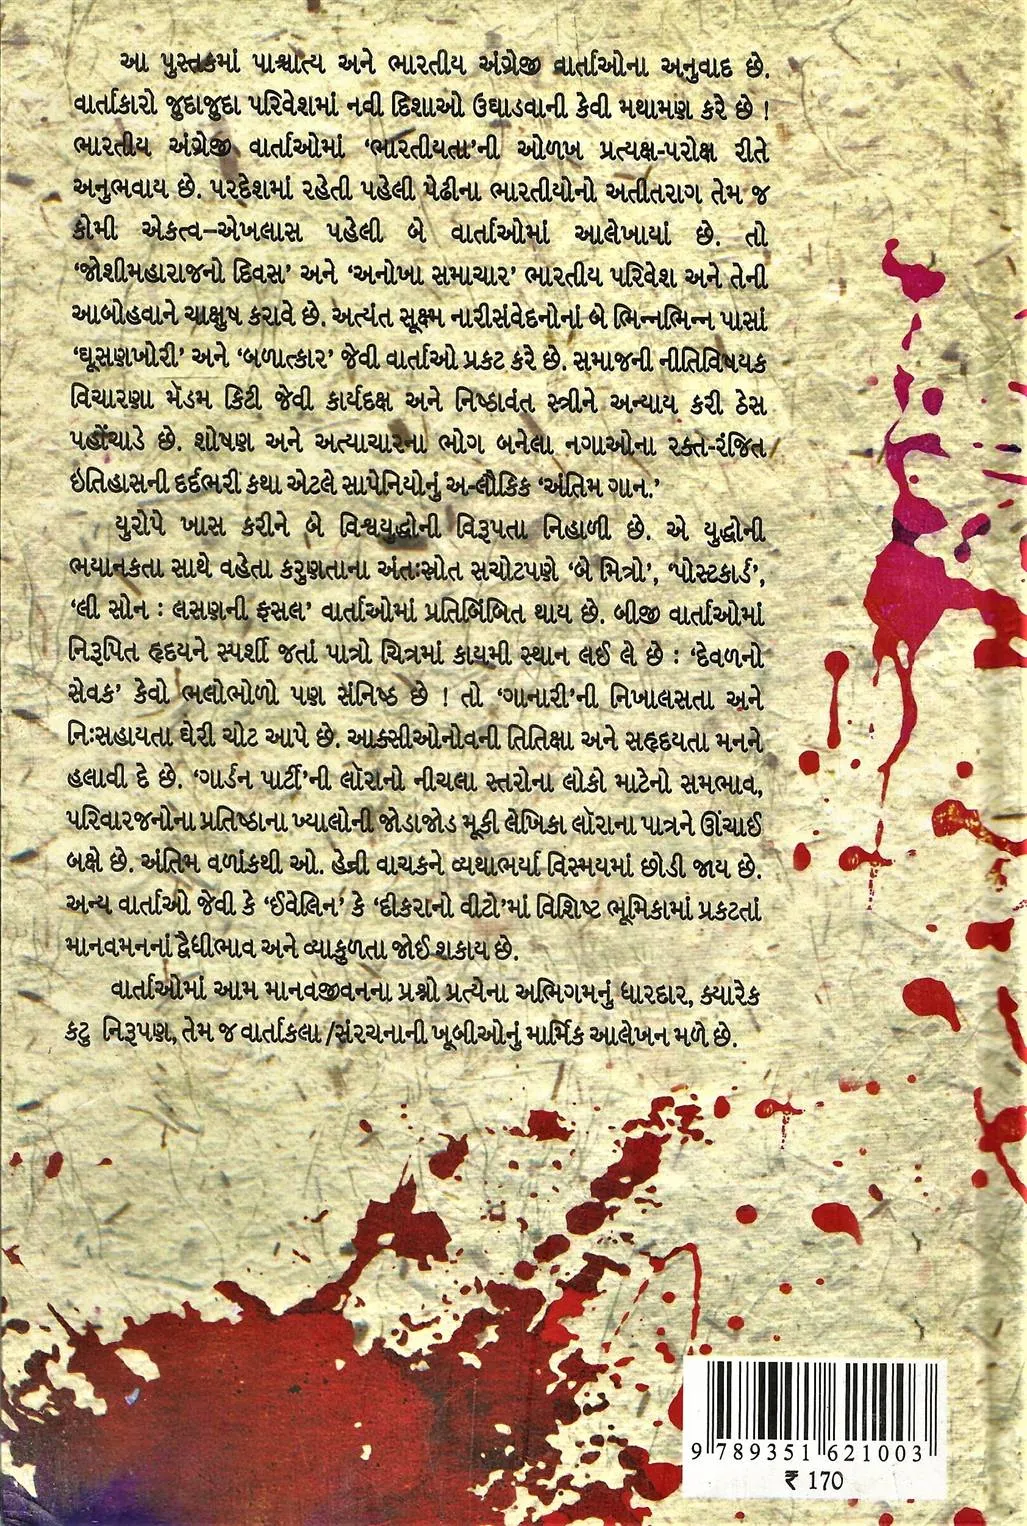 આ પુસ્તકમાં પાશ્ચાત્ય અને ભારતીય અંગ્રેજી વાર્તાઓના અનુવાદ છે.
વાર્તાકારો જુદાજુદા પરિવેશમાં નવી દિશાઓ ઉઘાડવાની કેવી મથામણ કરે છે !
ભારતીય અંગ્રેજી વાર્તાઓમાં ‘ભારતીયતા’ની ઓળખ પ્રત્યક્ષ-પરોક્ષ રીતે
અનુભવાય છે. પરદેશમાં રહેતી પહેલી પેઢીના ભારતીયોનો અતીતરાગ તેમ જ
કોમી એકત્વ–એખલાસ પહેલી બે વાર્તાઓમાં આલેખાયાં છે. તો
‘જોશીમહારાજનો દિવસ’ અને ‘અનોખા સમાચાર’ ભારતીય પરિવેશ અને તેની
આબોહવાને ચાક્ષુષ કરાવે છે. અત્યંત સૂક્ષ્મ નારીસંવેદનોનાં બે ભિન્નભિન્ન પાસાં
‘ઘૂસણખોરી’ અને ‘બળાત્કાર’ જેવી વાર્તાઓ પ્રકટ કરે છે. સમાજની નીતિવિષયક
વિચારણા મૅડમ કિટી જેવી કાર્યદક્ષ અને નિષ્ઠાવંત સ્ત્રીને અન્યાય કરી ઠેસ
પહોંચાડે છે. શોષણ અને અત્યાચારના ભોગ બનેલા નગાઓના રક્ત-રંજિત
ઇતિહાસની દર્દભરી કથા એટલે સાપેનિયોનું અ-લૌકિક ‘અંતિમ ગાન.’
યુરોપે ખાસ કરીને બે વિશ્વયુદ્ધોની વિરૂપતા નિહાળી છે. એ યુદ્ધોની
ભયાનકતા સાથે વહેતા કરુણતાના અંતઃસ્રોત સચોટપણે ‘બે મિત્રો’, ‘પોસ્ટકાર્ડ’,
‘લી સોન : લસણની ફસલ’ વાર્તાઓમાં પ્રતિબિંબિત થાય છે. બીજી વાર્તાઓમાં
નિરૂપિત હૃદયને સ્પર્શી જતાં પાત્રો ચિત્રમાં કાયમી સ્થાન લઈ લે છે : ‘દેવળનો
સેવક’ કેવો ભલોભોળો પણ સંનિષ્ઠ છે ! તો ‘ગાનારી’ની નિખાલસતા અને
નિઃસહાયતા ઘેરી ચોટ આપે છે. આક્સીઓનોવની તિતિક્ષા અને સહૃદયતા મનને
હલાવી દે છે. ‘ગાર્ડન પાર્ટી’ની લૉરાનો નીચલા સ્તરોના લોકો માટેનો સમભાવ,
પરિવારજનોના પ્રતિષ્ઠાના ખ્યાલોની જોડાજોડ મૂકી લેખિકા લૉરાના પાત્રને ઊંચાઈ
બક્ષે છે. અંતિમ વળાંકથી ઓ. હેન્રી વાચકને વ્યથાભર્યા વિસ્મયમાં છોડી જાય છે.
અન્ય વાર્તાઓ જેવી કે ‘ઈવેલિન’ કે ‘દીકરાનો વીટો’માં વિશિષ્ટ ભૂમિકામાં પ્રકટતાં
માનવમનનાં દ્વૈધીભાવ અને વ્યાકુળતા જોઈ શકાય છે.
વાર્તાઓમાં આમ માનવજીવનના પ્રશ્નો પ્રત્યેના અભિગમનું ધારદાર, ક્યારેક
કટુ નિરૂપણ, તેમ જ વાર્તાકલા /સંરચનાની ખૂબીઓનું માર્મિક આલેખન મળે છે.
9 789351 621003
₹ 170